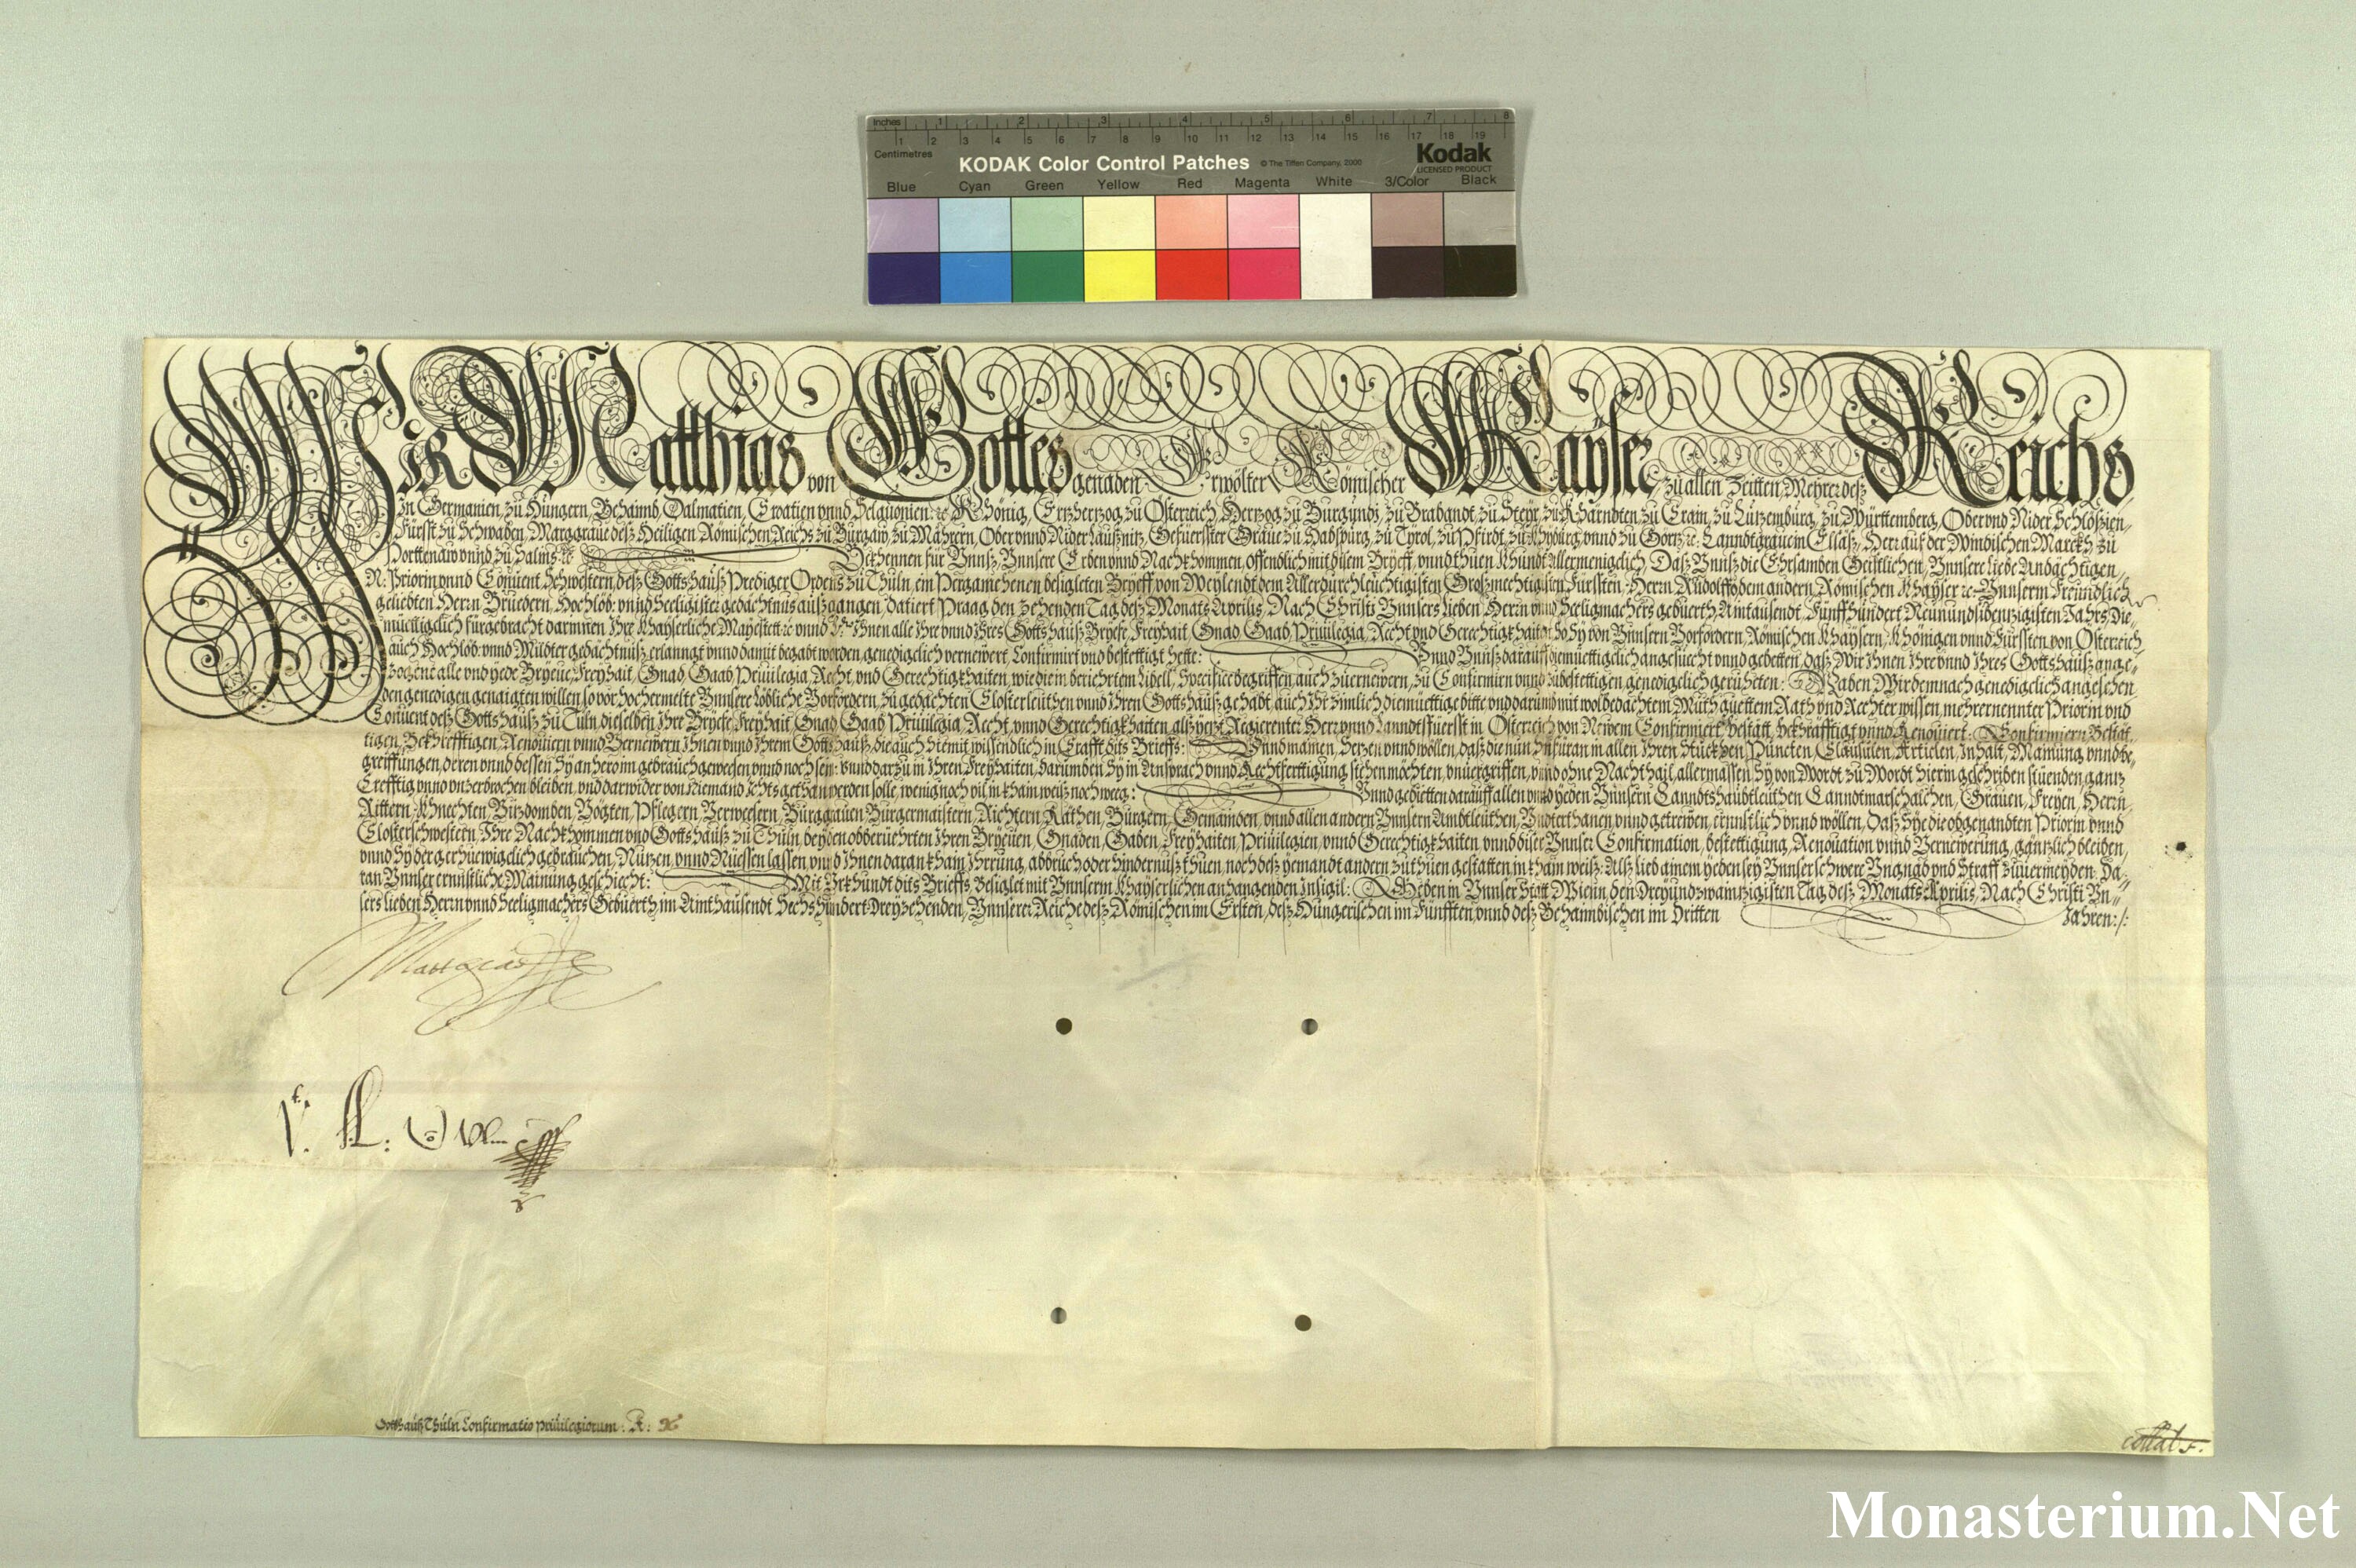 Inches 1 2 3 4 5 6 7 8
1 2 3 4 5 6 7 8 9 10 11 12 13 14 15 16 17 18 19
Centimetres
KODAK Color Control Patches © The Tiffen Company, 2000 Kodak
LICENSED PRODUCT
Blue Cyan Green Yellow Red Magenta White 3/Color Black
WIR Matthias von Gottes genaden Erwölter Römischer Kayser, zu allen Zeitten Mehrer deß Reichs
In Germanien, zu Hungern, Behaimb, Dalmatien, Croatien vnnd Sclauonien: ꝛc Khönig, Ertzhertzog zu Osterreich, Hertzog zu Burgundj, zu Brabandt, zu Steyr, zu Kharndten, zu Crain, zu Lützemburg, zu Württemberg, Ober vnd Nider Schlösien,
Fürsst zu Schwaben, Marggraue deß Heiligen Römischen Reichs zu Burgaw, zu Mährern, Ober vnnd Nider Laußnitz, Gefüerster Graue zu Habspurg, zu Tyrol, zu Pfirdt, zu Khyburg, vnnd zu Görtz ꝛc: Lanndtgraue in Ellsaß, Herr auf der Windischen Marckh zu
Porttenaw vnnd zu Salins ꝛc Bekhennen für Vnnß, Vnnsere Erben vnnd Nachkhommen, offendlich mit disem Bryeff, vnnd thuen Khundt Allermenigclich, Daß Vnnß die Ehrsamben Geistlichen, Vnnsere liebe Andächtigen,
N: Priorin vnnd Conuent Schwestern, deß Gottshauß Prediger Ordens zu Thuln, ein Pergamenen besigleten Bryeff von Weylendt dem Allerdurchleuchtigisten Großmechtigisten Fürssten, Herrn Rudolffo dem andern Römischen Khayser ꝛc Vnnserm Freundtlich
geliebten Herrn Bruedern, Hochlöb: vnnd Seeligister gedächtnus außgangen, Datiert Praag den zehenden Tag deß Monats Aprilis, Nach Christi Vnnsers lieben Herrn vnnd Seeligmachers gebuerth, Am tausendt Fünffhundert Neunundsibentzigisten Jahrs, Die-
müetigelich fürgebracht, darinnen Ihre Khayserliche Mayestett ꝛc vnnd Ihnen alle Ihre vnnd Ihres Gottshauß Bryefe, Freyhait, Gnad, Gaab, Priuilegia, Recht vnd Gerechtigkhaiten So Sy von Vnnsern Vorfordern, Römischen Khaysern, Khönigen vnnd Fürssten von Osterreich
auch Hochlöb: vnnd Milder gedächtnuß erlanngt vnnd damit begabt worden, genedigelich vernewert, Confirmirt vnd bestettigt hette: Vnnd Vnnß darauff diemüettigelich angesuecht vnnd gebetten, daß Wir Ihnen Ihre vnnd Ihres Gottshauß ange-
zogene alle vnd yede Bryeue, Freyhait, Gnad, Gaab, Priuilegia, Recht, vnd Gerechtigkhaiten, wie die in beriehrtem Libell, Specifice begriffen, auch zuernewern, zu Confirmirn vnnd zubestettigen genedigelich geruheten: Haben Wir demnach genedigelich angesehen
den genedigen genaigten willen, so vor hochermelte Vnnsere Löbliche Vorfordern, zu gedachten Closterleüthen vnnd Ihren Gottshauß gehabt, auch Ihr zimblich diemüettige bitte vnd darumb mit wolbedachtem Mueth, guettem Rath vnd Rechter wissen, mehrernennter Priorin vnd
Conuent deß Gottshauß zu Tuln dieselben Ihre Bryefe, Freyhait, Gnad, Gaab, Priuilegia, Recht, vnnd Gerechtigkhaiten, alß yetzt Regierennter Herr vnnd Lanndtsfüerst in Osterreich von Newem Confirmiert, bestätt, bekhräfftigt vnnd Renouiert: Confirmiern, Bestät-
tigen, Bekhrefftigen, Renouiern vnnd Vernewern Ihnen vnnd Ihrem Gottshauß, die auch hiemit wissendlich in Crafft dits Brieffs: Vnnd mainen, Setzen vnnd wöllen, daß die nun hinfüran in allen Ihren Stuckhen, Puncten, Clausulen, Articlen, Inhalt, Mainung vnnd be-
greiffungen, deren vnnd dessen Sy anhero im gebrauch gewesen vnnd noch sein: vnnd darzu in Ihren Freyhaiten, darumben Sy in Ansprach vnnd Rechtferttigung stehen möchten, vnuergriffen, vnnd ohne Nachthail, allermassen Sy von Wordt zu Wordt hierin geschriben stüenden, gantz
Crefftig vnnd vnzerbrochen bleiben, vnd darwider von Niemand Ichts gethan werden solle, wenig noch vil, in khain weiß noch weeg: Vnnd gebietten darauff allen vnnd yeden Vnnsern Lanndtshaubtleüthen, Lanndtmarschalchen, Grauen, Freyen, Herrn,
Rittern, Khnechten, Vitzdomben, Vögten, Pflegern, Verwesern, Burggrauen, Burgermaistern, Richtern, Räthen, Burgern, Gemainden, vnnd allen andern Vnnsern Ambtleüthen, Vnderthanen vnnd getreiwen, ernnstlich vnnd wöllen, Daß Sye die obgenandten Priorin vnnd
Closterschwestern, Ihre Nachkhommen vnd Gottshauß zu Thuln, bey den obberüehrten Ihren Bryeuen, Gnaden, Gaben, Freyhaiten, Priuilegien, vnnd Gerechtigkhaiten, vnnd diser Vnnser Confirmation, bestettigung, Renouation vnnd Vernewerung, gäntzlich bleiben,
vnnd Sy der gerhuewigelich gebrauchen, Nutzen, vnnd Nüessen lassen, vnnd Ihnen daran khain Irrung, abbruch oder hindernuß thuen, noch deß yemandt andern zuthuen gestatten, in khain weiß: Alß lieb ainem yeden sey Vnnser schwere Vngnad vnd Straff zuuermeyden: Da-
ran Vnnser ernnstliche Mainung geschiecht: Mit Vrkhundt dits Brieffs, Besiglet mit Vnnserm Khayserlichen anhangenden Insigil: Geben in Vnnser Statt Wienn, den Dreyundzwaintzigisten Tag deß Monats Aprilis, Nach Christi Vn-
sers lieben Herrn vnnd Seeligmachers Gebuerth, im Ainthausendt Sechshundert Dreyzehenden, Vnnserer Reiche deß Römischen im Ersten, deß Hungerischen im Fünfften, vnnd deß Behaimbischen im Dritten Jahren:/:
Matthias
Gottshauß Thuln Confirmatio Priuilegiorum: R:
collat
Monasterium.Net